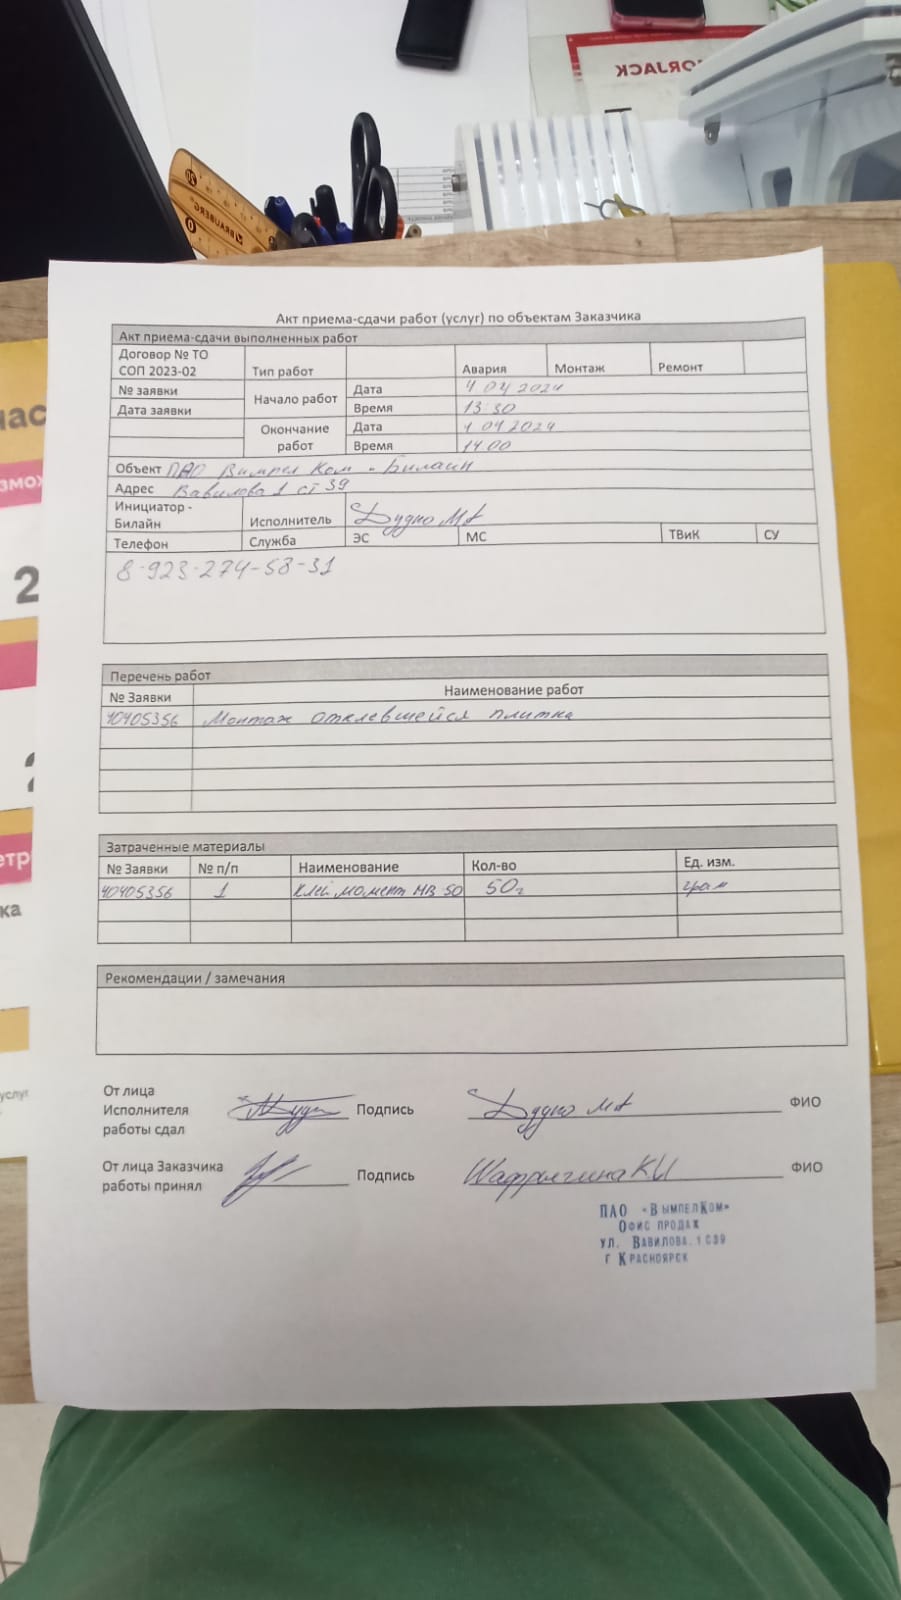 NORJACK
BRAUBERG
Акт приема-сдачи работ (услуг) по объектам Заказчика
Акт приема-сдачи выполненных работ
Договор № ТО СОП 2023-02 Тип работ Авария Монтаж Ремонт
№ заявки Начало работ Дата 4 04 2024
Дата заявки Время 13:30
Окончание работ Дата 4 04 2024
Время 14.00
Объект ПАО Вымпел Ком "Билайн
Адрес Вавилова 1 ст 39
Инициатор - Билайн Исполнитель Дудко МА
Телефон Служба ЭС МС ТВиК СУ
8-923-274-58-31
Перечень работ
№ Заявки Наименование работ
40405356 Монтаж отклевшейся плитка
Затраченные материалы
№ Заявки № п/п Наименование Кол-во Ед. изм.
40405356 1 Клей момент МВ 50 50г грам
Рекомендации / замечания
От лица
Исполнителя Подпись Дудко МА ФИО
работы сдал
От лица Заказчика Подпись КИ ФИО
работы принял
ПАО «ВымпелКом»
Офис продаж
ул. Вавилова.1 С39
г Красноярск